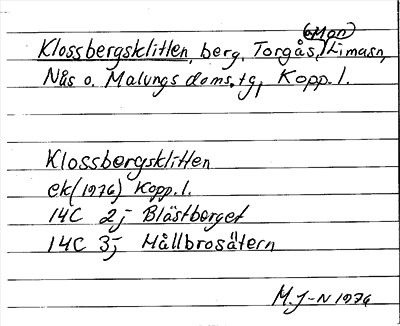 (Mon)
Klossbergsklitten, berg, Torgås, Limasn,
Nås o. Malungs doms.tg, Kopp.l.
Klossbergsklitten
ek (1976) Kopp.l.
14C 2j Blästberget
14C 3j Hållbrosätern
M.J-N 1976